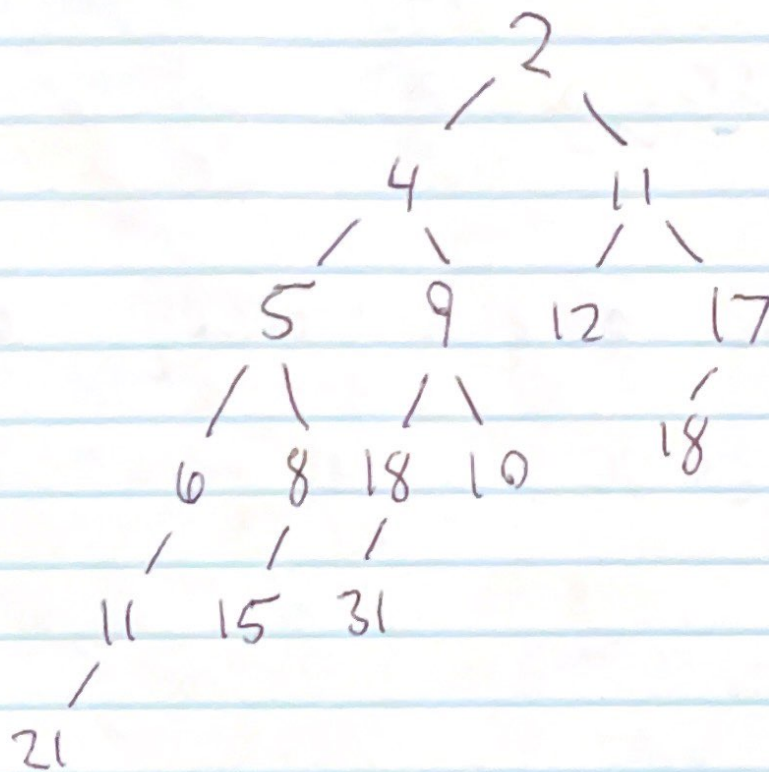 2
4 11
5 9 12 17
6 8 18 10 18
11 15 31
21